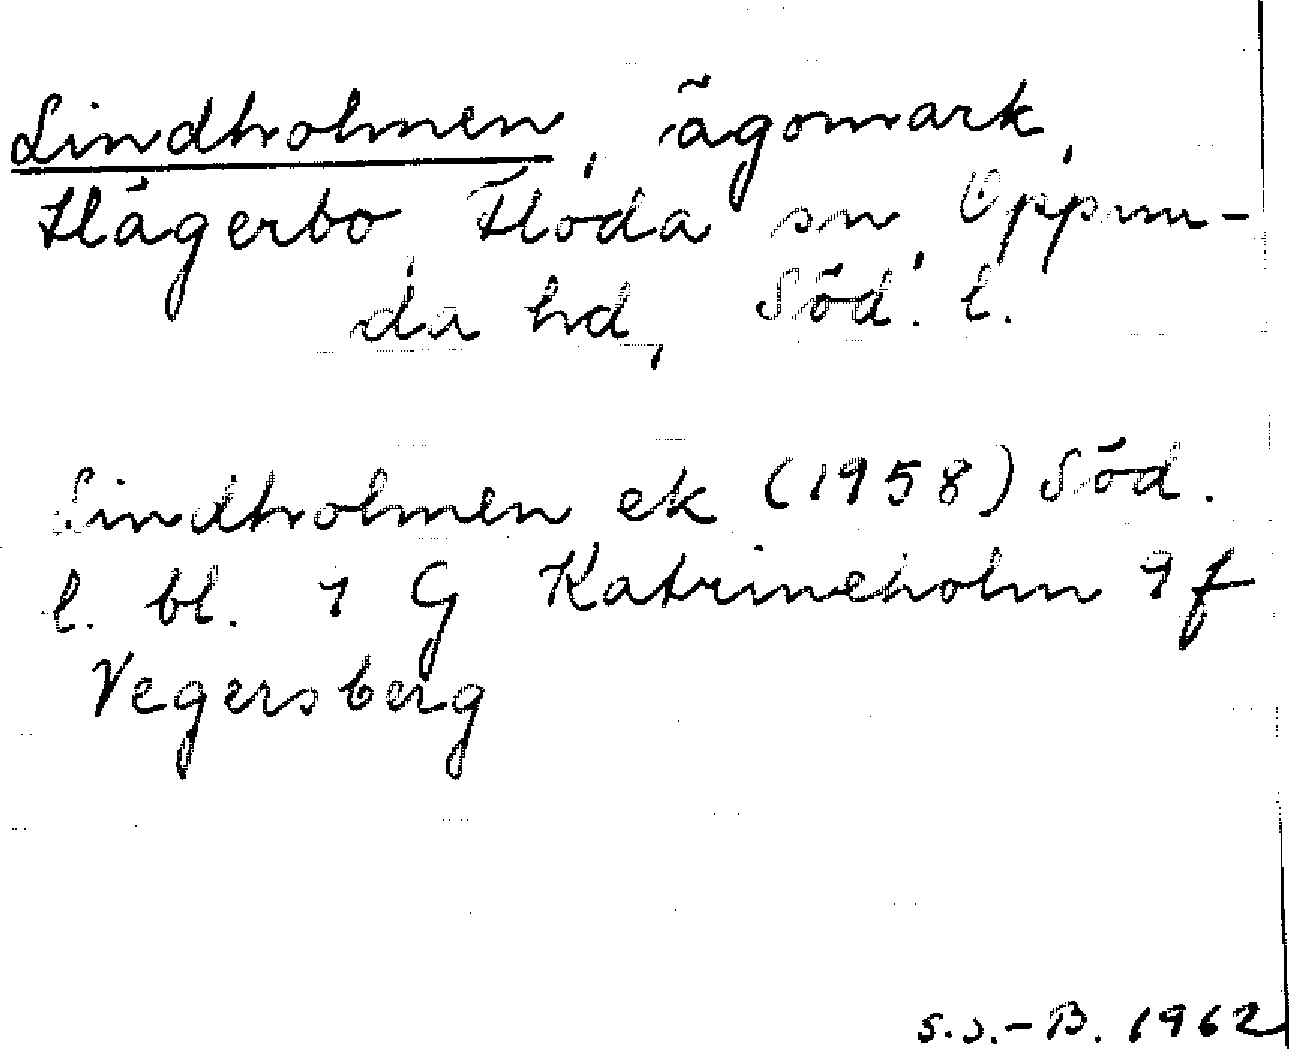 Lindholmen, ägomark,
Hägerbo, Floda sn, Oppun-
da hd, Söd. l.
Lindholmen ek (1958) Söd.
l. bl. 9 G Katrineholm 9 f
Vegersberg
S.S.-B. 1962